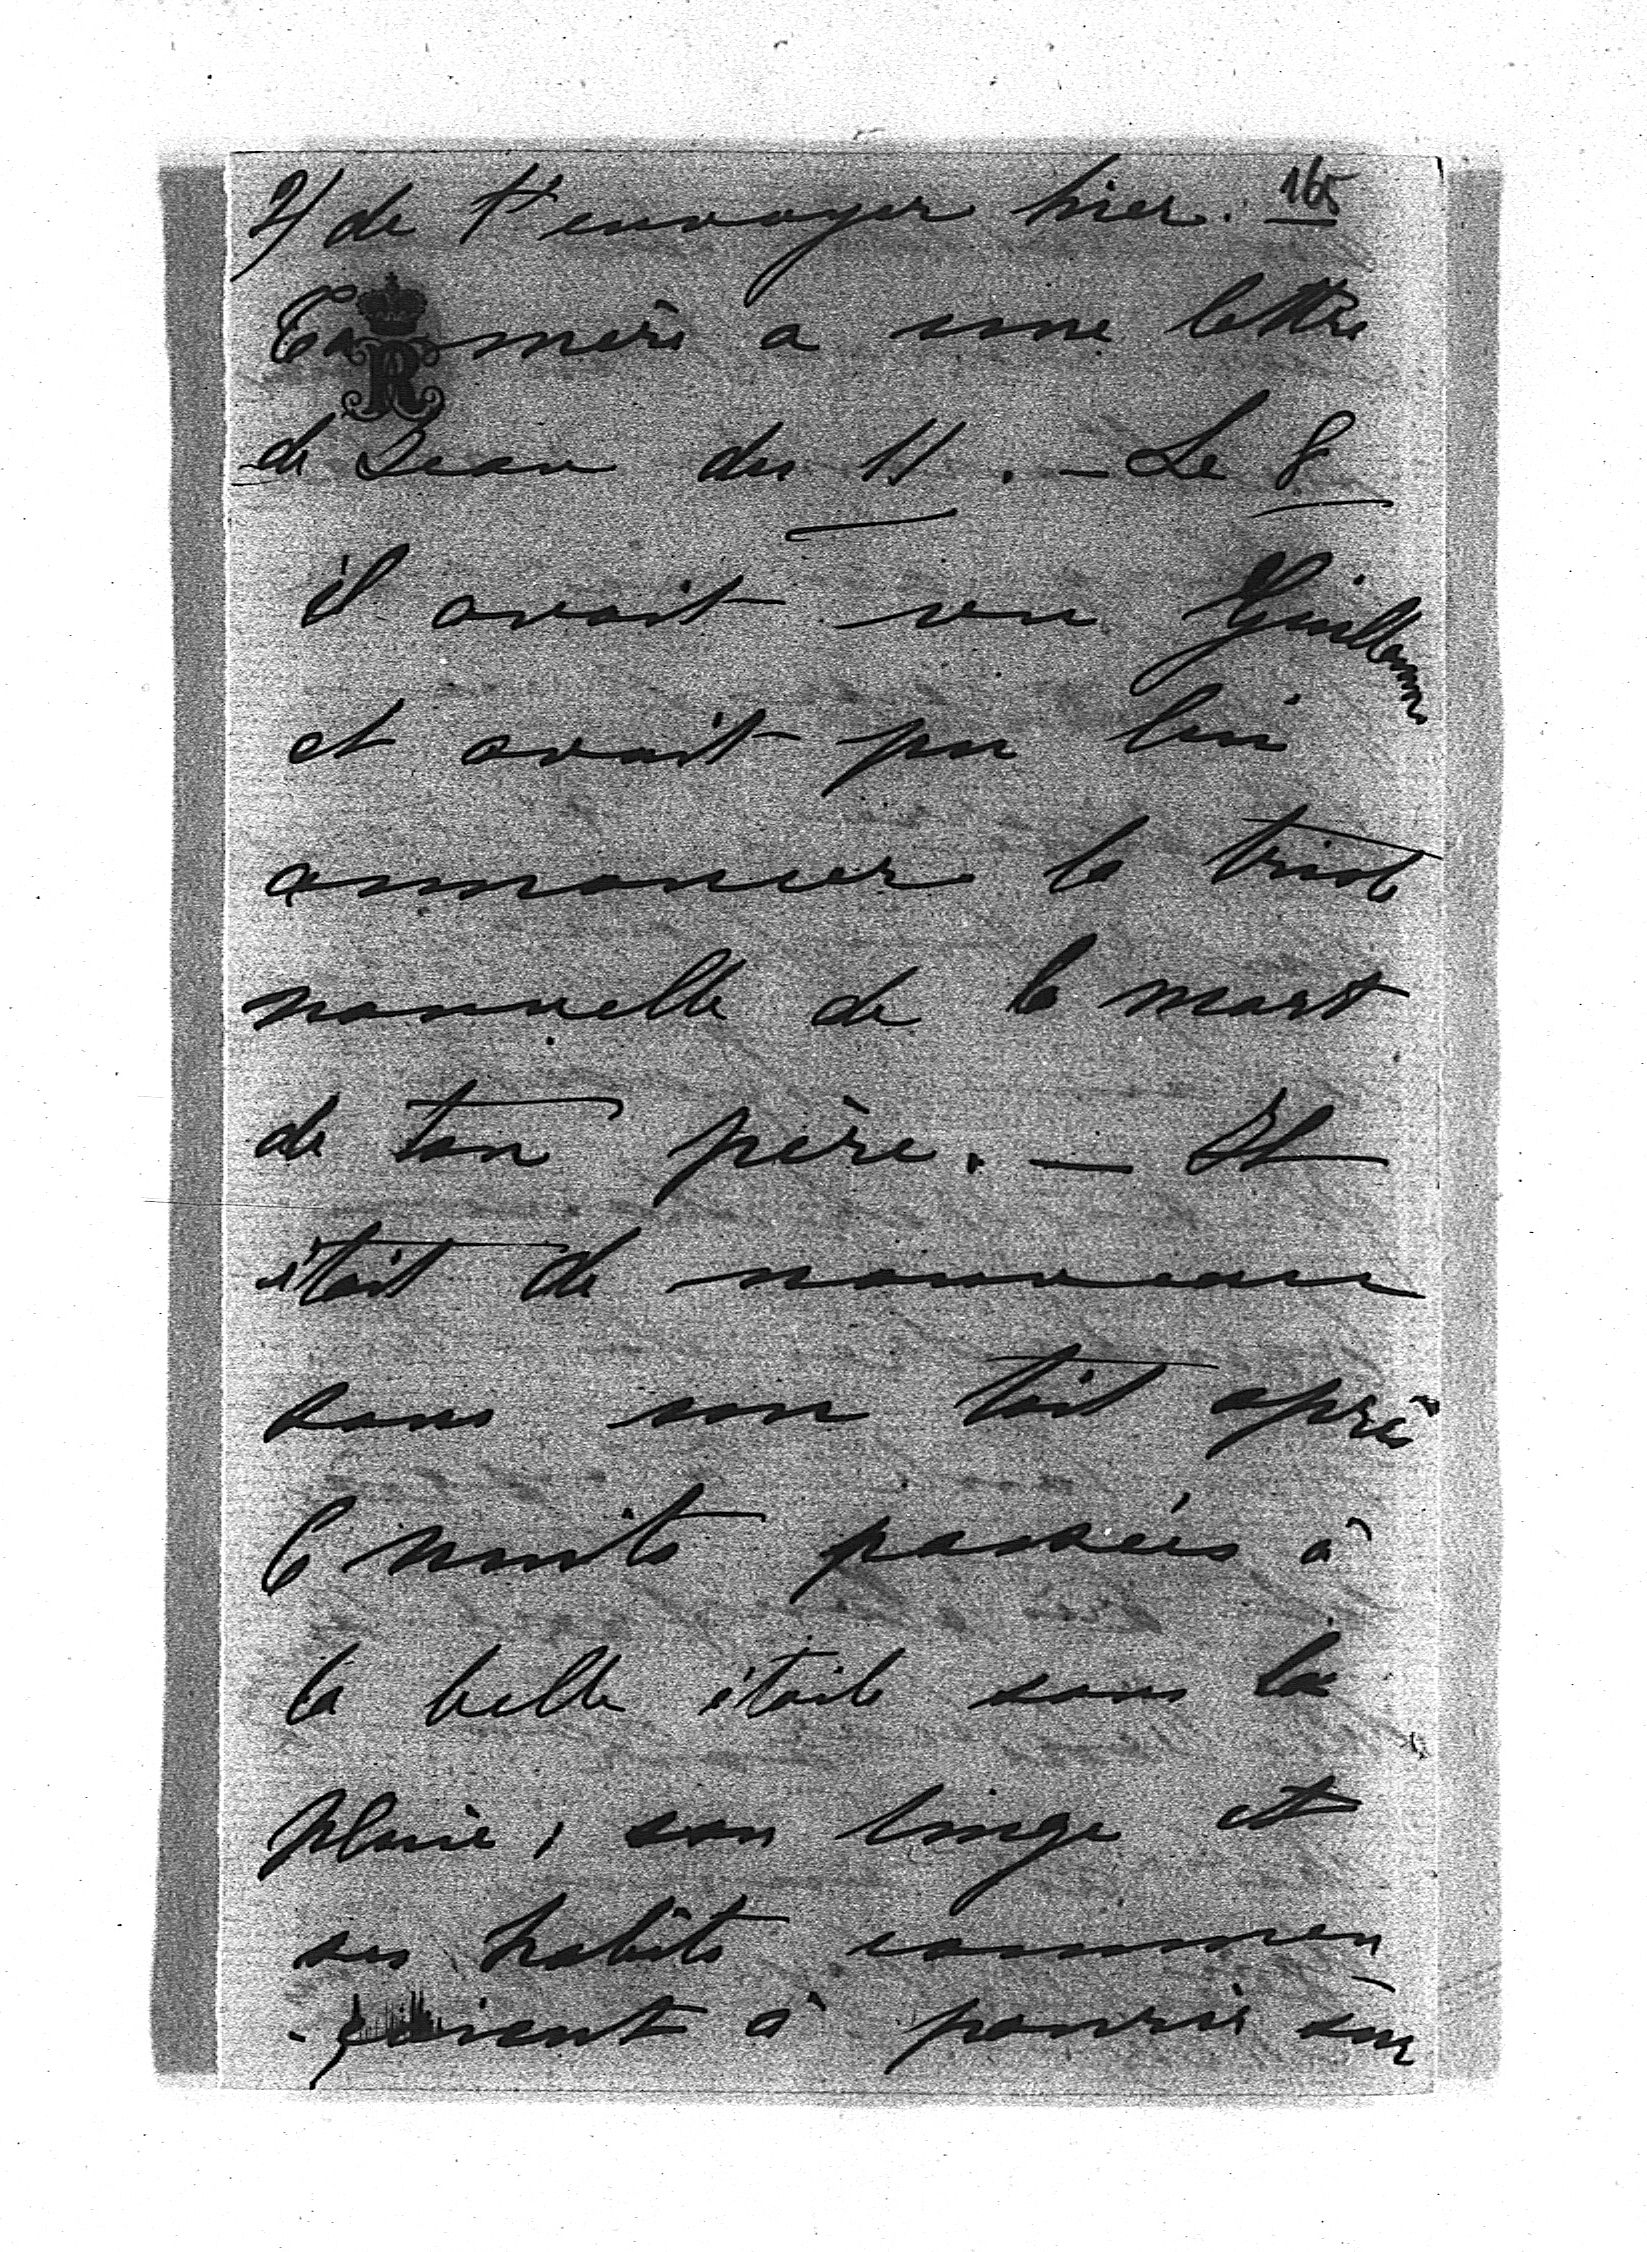 2) de t'envoyer hier. 165
Ta mère a une lettre
de Jean du 11. – Le 8
il avait vu Guillaume
et avait pu lui
annoncer la triste
nouvelle de la mort
de ton père. – Il
était de nouveau
sous son toit après
6 nuits passées à
la belle étoile sous la
pluie, son linge et
ses habits commen
-çaient à pourrir sur